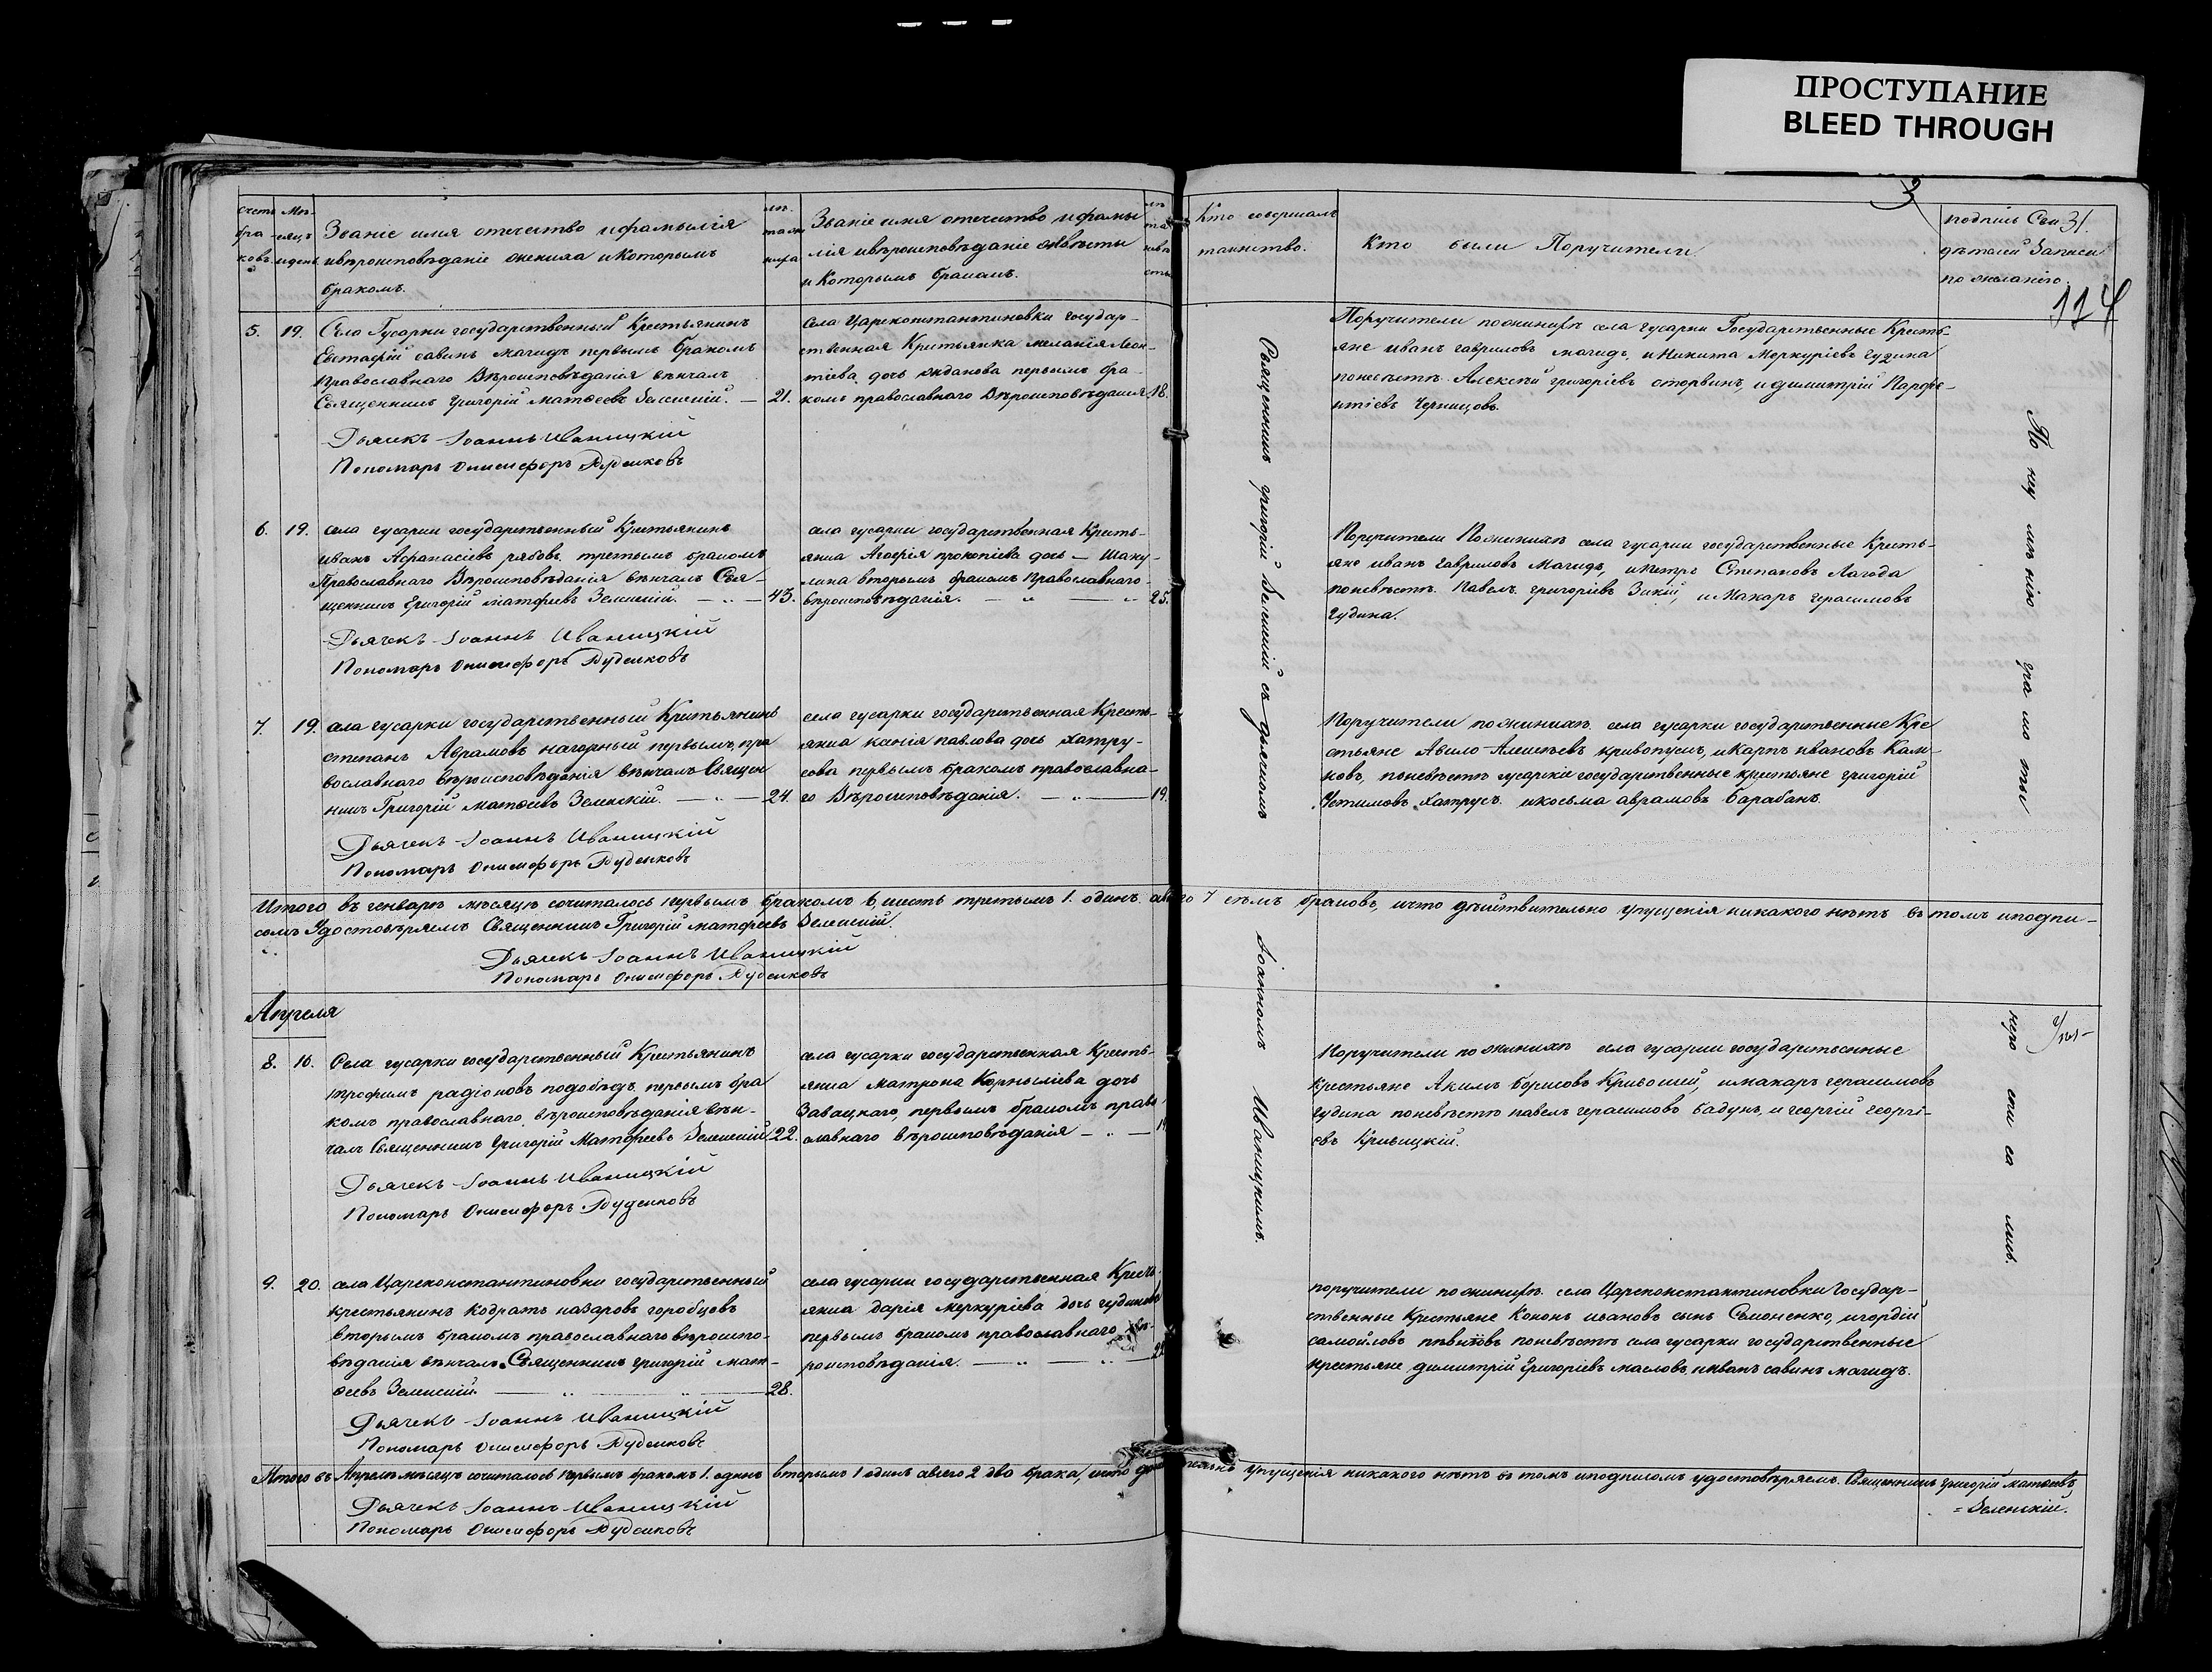 ПРОСТУПАНИЕ
BLEED THROUGH
3
31.
114
счетъ бра-ковъ
Мѣ-сяцъ и день
Званіе имя отечество и фамылія
и вѣроисповѣданіе жениха и Которымъ
бракомъ.
лѣ-та жениха
Званіе имя отечество и фамы
лія и вѣроисповѣданіе невѣсты
и Которымъ бракомъ.
лѣта невѣсты
Кто совершалъ
таинство.
Кто были Поручители
подпись Сви
дѣтелей Записи
по желанію.
5. 19. Села Гусарки государственный Крестьянинъ
Евстафій савинъ магидъ первымъ бракомъ
Православнаго Вѣроисповѣданія вѣнчалъ
Священникъ Григорій Матѳеевъ Зеленскій. — 21.
Дьячекъ Іоаннъ Иваницкій
Пономарь Онисифоръ Дуденковъ
села Цареконстантиновки государ-
ственная Кристьянка меланія Леон-
тіева дочь первымъ бра-
комъ православнаго Вѣроисповѣданія 18.
Поручители по женихѣ села гусарки Государственные Кресть-
яне иванъ гавриловъ магидъ, и Никита Меркуріевъ гудина
по невѣстѣ Алексѣй григоріевъ и димитрій Парфе-
нтіевъ Черницовъ.
6. 19. села гусарки государственный Кристьянинъ
иванъ Афанасіевъ рябовъ третьимъ бракомъ
Православнаго Вѣроисповѣданія вѣнчалъ Свя-
щенникъ Григорій матфеевъ Зеленскій. — 43.
Дьячекъ Іоаннъ Иваницкій
Пономарь Онисифоръ Дуденковъ
села гусарки государственная Кресть-
янка Агафія прокопіева дочь — Шаку-
лина вторымъ бракомъ Православнаго
вѣроисповѣданія. — 25.
Поручители По женихѣ села гусарки государственные Кресть-
яне иванъ гавриловъ Магидъ, и Петръ Степановъ Лагода
по невѣстѣ Павелъ григоріевъ Зикій, и Макаръ герасимовъ
гудина.
7. 19. села гусарки государственный Кристьянинъ
степанъ Аврамовъ нагорный первымъ, пра
вославнаго вѣроисповѣданія вѣнчалъ Священ
никъ Григорій матѳеевъ Зеленскій. — 24.
Дьячекъ Іоаннъ Иваницкій
Пономарь Онисифоръ Дуденковъ
села гусарки государственная Кресть-
янка ксенія павлова дочь хатру-
сова первымъ бракомъ православна-
го Вѣроисповѣданія. — 19.
Поручители по женихѣ села гусарки государственные Кре
стьяне Авило Алексѣевъ кривопускъ, и Карпъ ивановъ Кал-
ковъ, по невѣстѣ гусаркіе государственные крестьяне григорій
Устимовъ Хатрусъ и косьма аврамовъ барабанъ.
Итого въ генварѣ мѣсяцѣ сочиталось первымъ бракомъ 6, шесть третьимъ 1. одинъ всего 7 семъ браковъ, и что дѣйствительно упущенія никакого нѣтъ въ томъ и подпи-
сомъ Удостовѣряемъ Священникъ Григорій матфеевъ Зеленскій.
Дьячекъ Іоаннъ Иваницкій
Пономарь Онисифоръ Дуденковъ
Апреля
8. 16. Села гусарки государственный Крестьянинъ
трофимъ радіоновъ подобѣдъ первымъ бра
комъ православнаго вѣроисповѣданія вѣн-
чалъ Священникъ Григорій Матфеевъ Зеленскій 22.
Дьячекъ Іоаннъ Иваницкій
Пономарь Онисифоръ Дуденковъ
села гусарки государственная Кресть-
янка матрона Корниліева дочь
Завацкаго, первымъ бракомъ право
славнаго вѣроисповѣданія —
Поручители по женихѣ села гусарки государственные
крестьяне Акимъ борисовъ Кривошей, и макаръ герасимовъ
гудина по невѣстѣ павелъ герасимовъ бадунъ, и георгій георгі-
евъ Кривицкій.
9. 20. села Цареконстантиновки государственный
крестьянинъ Кодратъ назаровъ горобцовъ
вторымъ бракомъ православнаго вѣроиспо-
вѣданія вѣнчалъ Священникъ григорій мат-
ѳеевъ Зеленскій. — 28.
Дьячекъ Іоаннъ Иваницкій
Пономарь Онисифоръ Дуденковъ
села гусарки государственная Кресть-
янка дарія меркуріева дочь гудинова
первымъ бракомъ православнаго вѣ-
роисповѣданія. —
поручители по женихѣ села Цареконстантиновки Государ-
ственные Крестьяне Кононъ ивановъ сынъ Семоненко, и гордій
самойловъ пѣвновъ по невѣстѣ села гусарки государственные
крестьяне димитрій Григоріевъ масловъ, и иванъ савинъ магидъ.
Итого въ Апрелѣ мѣсяцѣ сочиталось первымъ бракомъ 1. одинъ вторымъ 1 одинъ всего 2 два брака, и что упущенія никакого нѣтъ въ томъ и подписомъ удостовѣряемъ. Священникъ Григорій матѳеевъ
= Зеленскій.
Дьячекъ Іоаннъ Иваницкій
Пономарь Онисифоръ Дуденковъ
Священникъ григорій Зеленскій съ дьячкомъ Іоанномъ Иваницкимъ.
По не у мѣ нію гра мо ты